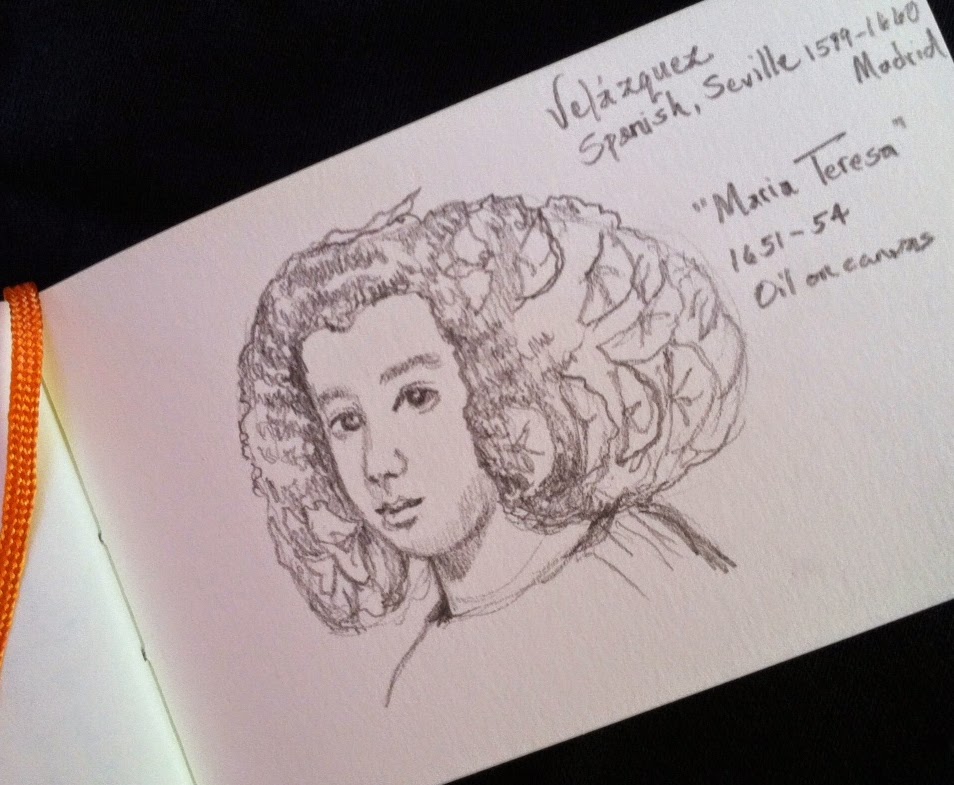 Velázquez
Spanish, Seville 1599-1660
Madrid
"Maria Teresa"
1651-54
Oil on canvas